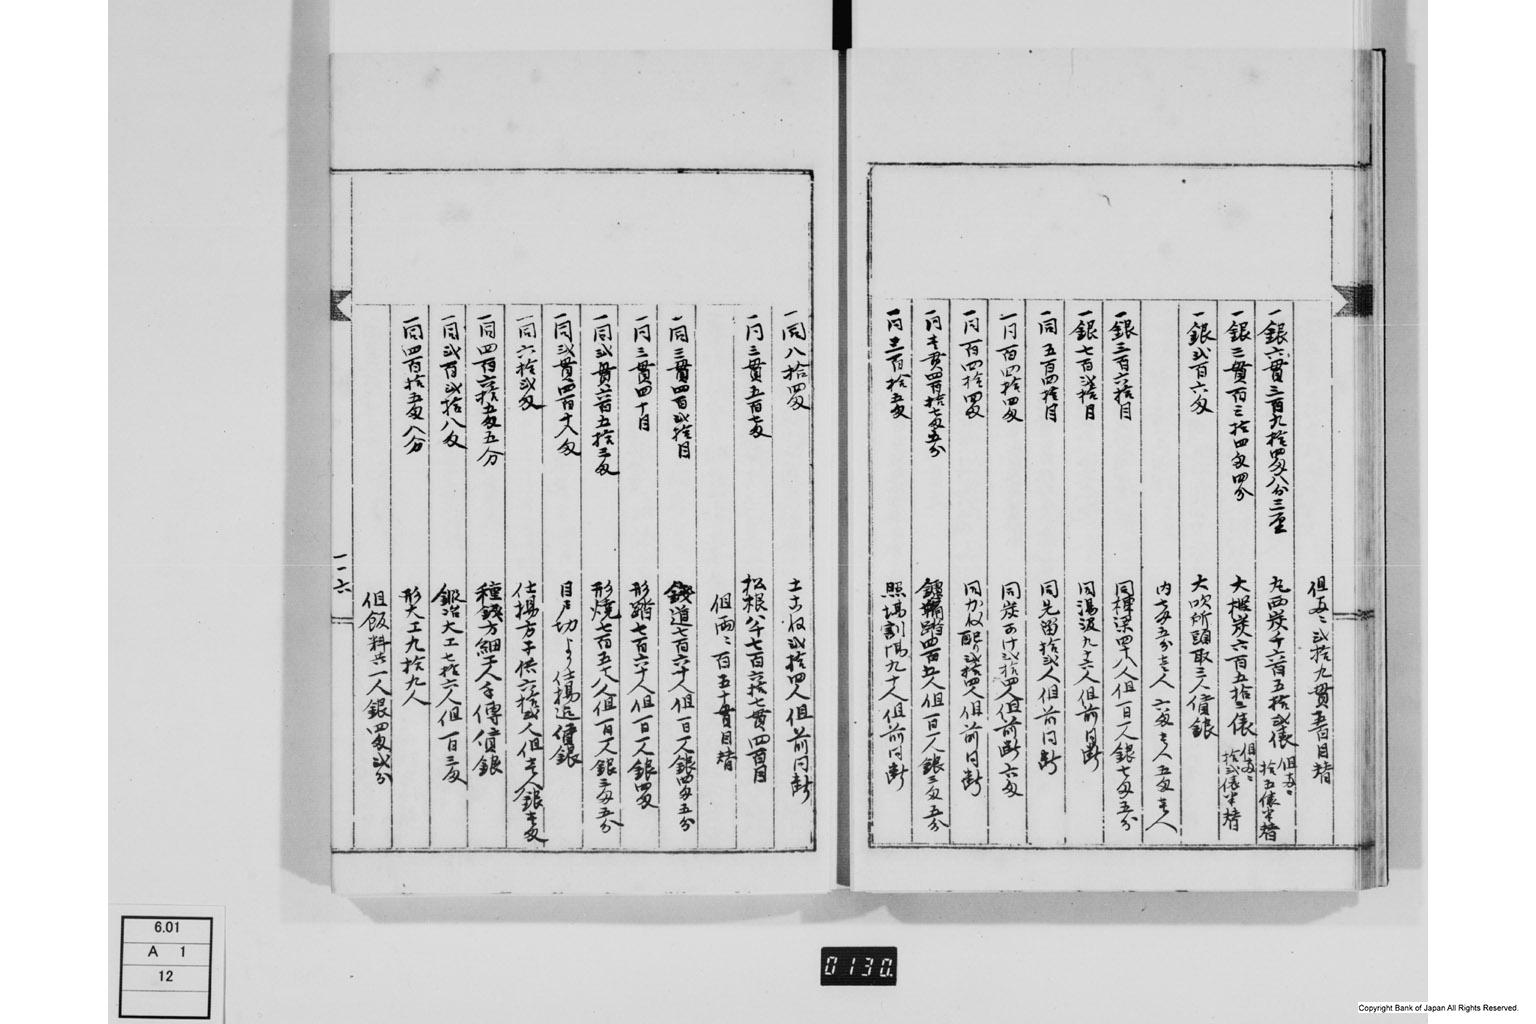 但両ニ弐拾九貫五百目替
一銀六貫三百九拾四匁八分三厘 丸西炭千六百五拾弐俵 但両ニ拾五俵半替
一銀三貫百三拾四匁四分 大桴炭六百五拾三俵 但両ニ拾弐俵半替
一銀弐百六匁 大吹所頭取三人償銀
内七匁五分壱人 六匁壱人 五匁壱人
一銀三百六拾目 同棟梁四十八人但一日一人銀七匁五分
一銀七百弐拾目 同湯汲九十六人但前同断
一同五百四拾目 同先留拾弐人但前同断
一同百四拾四匁 同炭かけ弐拾四人但前断六匁
一同百四拾四匁 同かね配り弐拾四人但前同断
一同壱貫四百拾七匁五分 鑪鞴踏四百五人但一日一人銀三匁五分
一同三百拾五匁 照場割場九十人但前同断
一同八拾四匁 土こね弐拾四人但前同断
一同三貫五百七匁 松根八千七百六拾七貫四百目
但両ニ百五十貫目替
一同三貫四百弐拾目 銭道七百六十人但一日一人銀四匁五分
一同三貫四十目 形踏七百六十人但一日一人銀四匁
一同弐貫六百五拾三匁 形焼七百五十八人但一日一人銀三匁五分
一同弐貫四百十八匁 目戸切より仕揚迄償銀
一同六拾弐匁 仕揚方子供六拾弐人但壱人銀壱匁
一同四百六拾五匁五分 種銭方細工人手傳償銀
一同弐百弐拾八匁 鍛冶大工七拾六人但一日三匁
一同四百拾五匁八分 形大工九拾九人
但飯料共一人銀四匁弐分
一一六
6.01
A 1
12
0130
Copyright Bank of Japan All Rights Reserved.